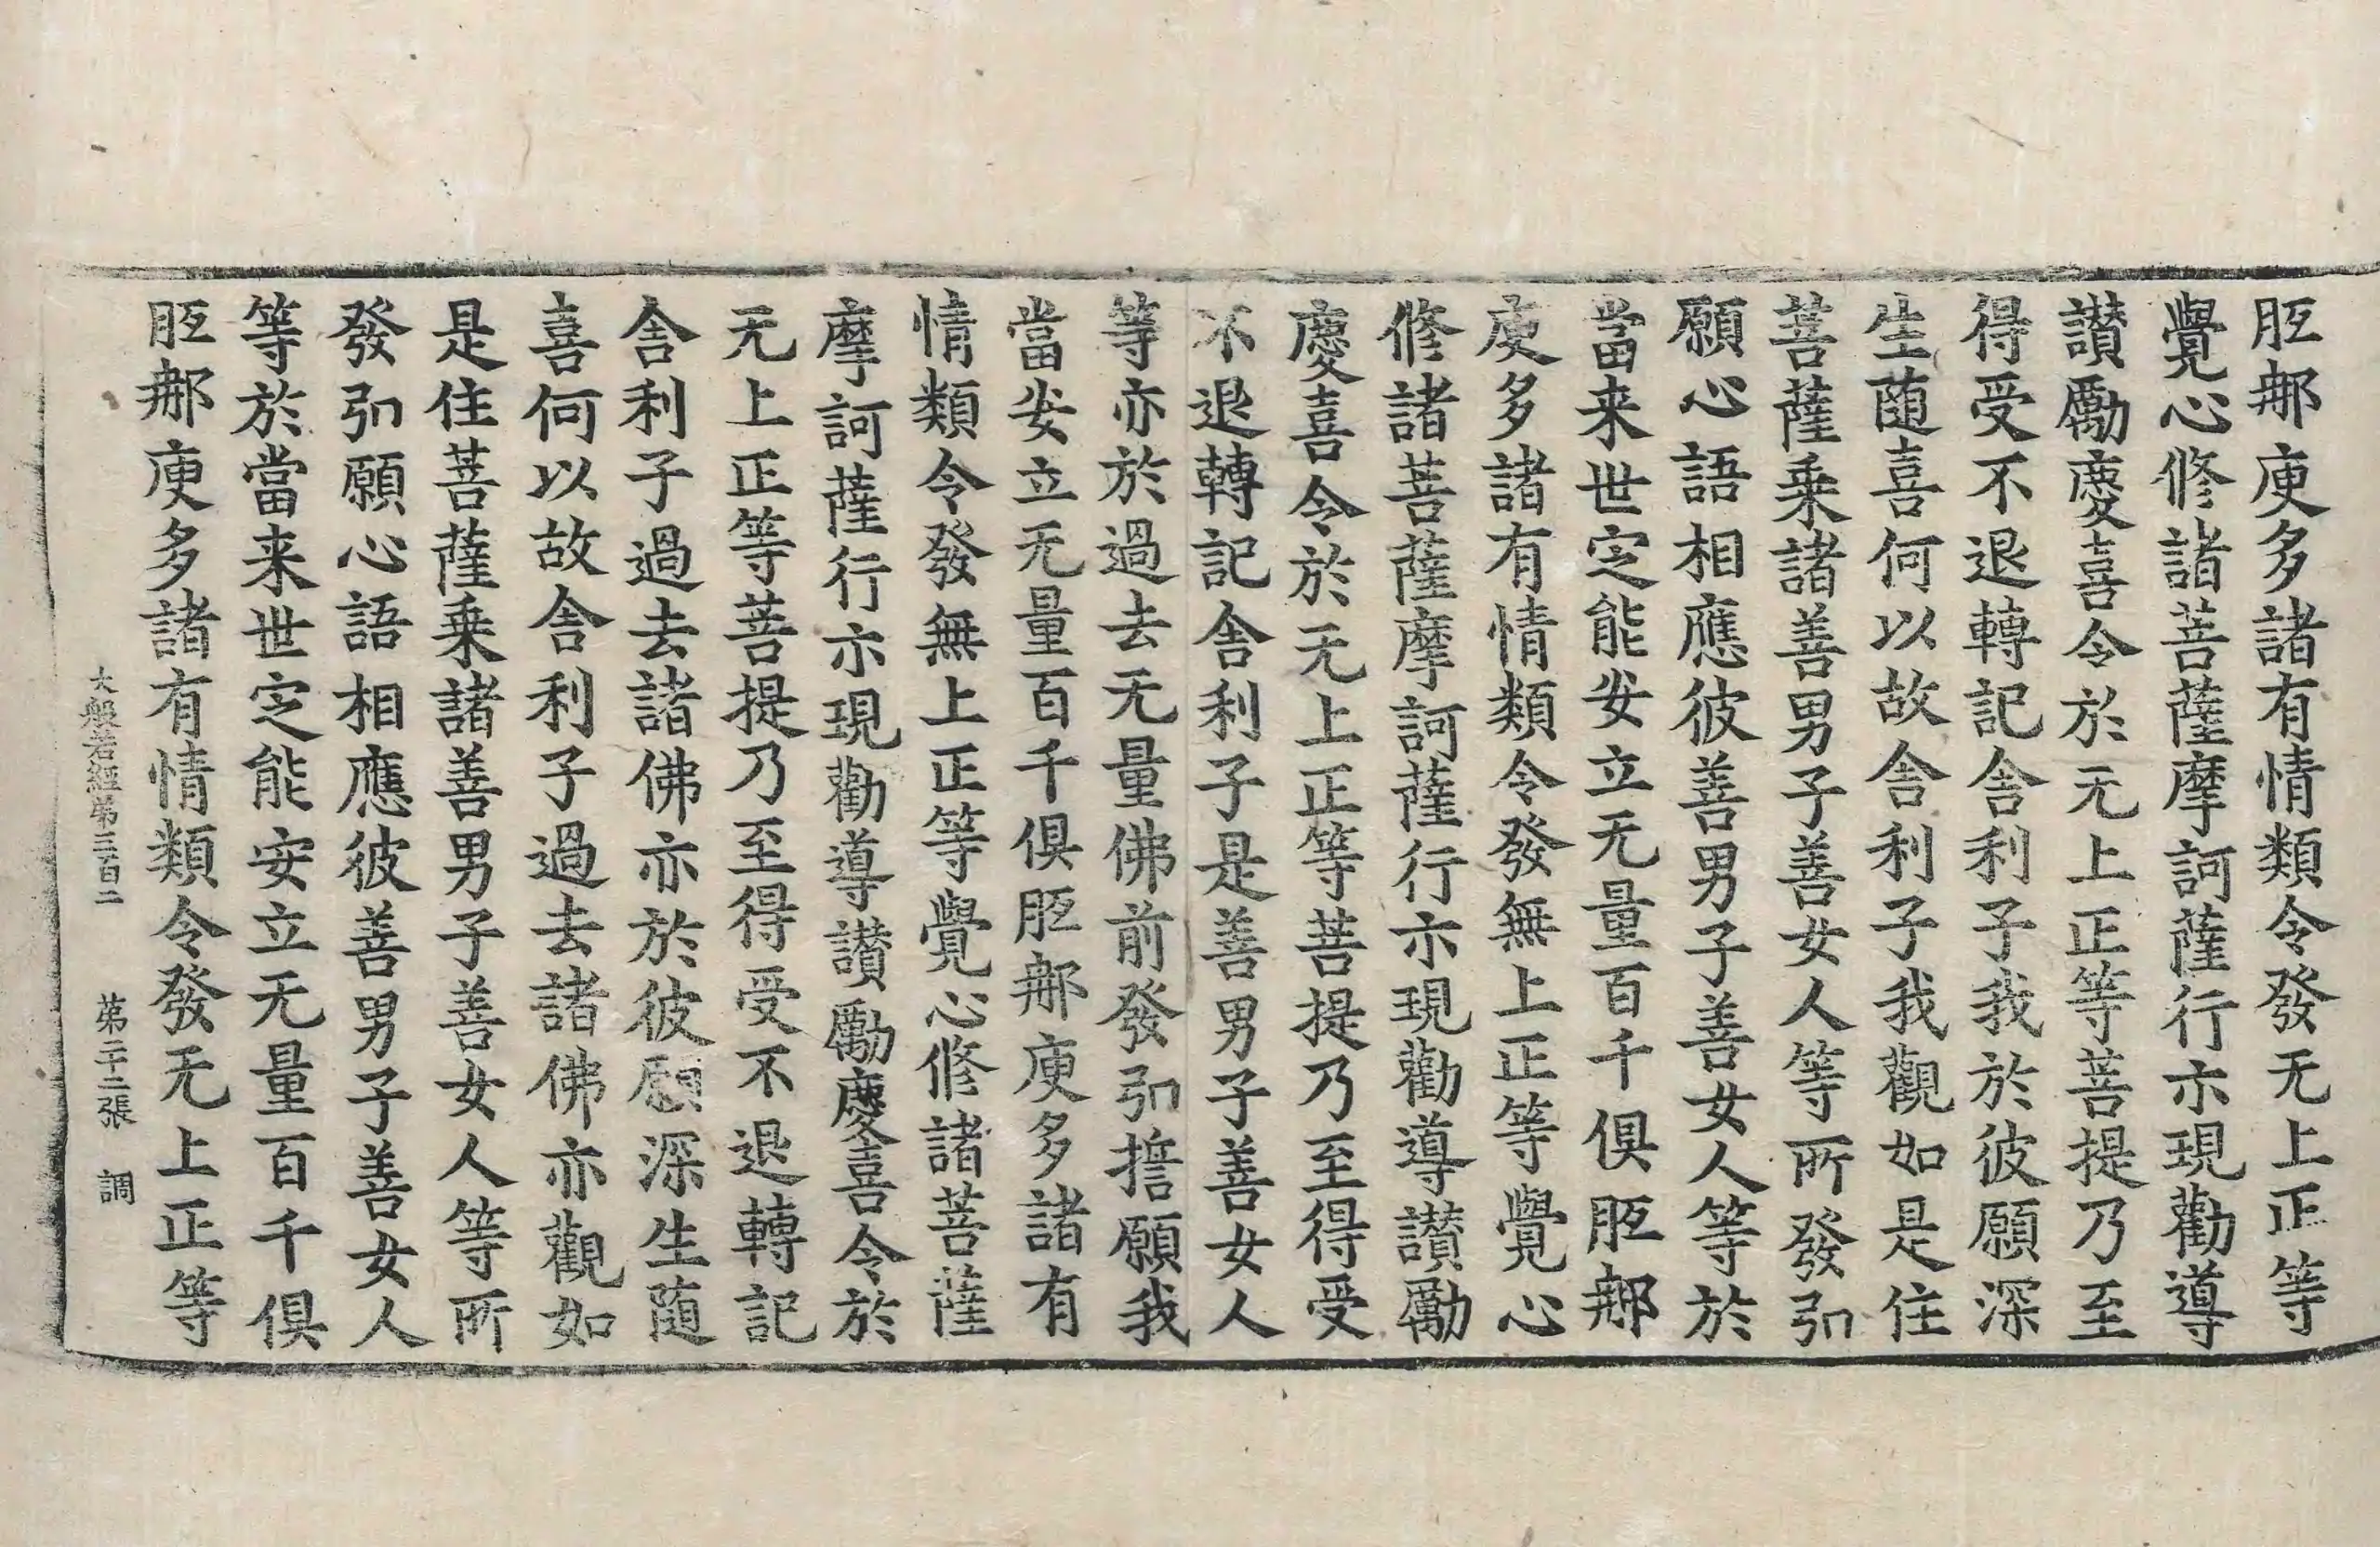 胝郍庾多諸有情類令發无上正等
覺心修諸菩薩摩訶薩行示現勸導
讃勵慶喜令於无上正等菩提乃至
得受不退轉記舍利子我於彼願深
生随喜何以故舍利子我觀如是住
菩薩乗諸善男子善女人等所發弘
願心語相應彼善男子善女人等於
當来世定能安立无量百千俱胝郍
庾多諸有情類令發無上正等覺心
修諸菩薩摩訶薩行示現勸導讃勵
慶喜令於无上正等菩提乃至得受
不退轉記舍利子是善男子善女人
等亦於過去无量佛前發弘誓願我
當安立无量百千俱胝郍庾多諸有
情類令發無上正等覺心修諸菩薩
摩訶薩行示現勸導讃勵慶喜令於
无上正等菩提乃至得受不退轉記
舍利子過去諸佛亦於彼願深生随
喜何以故舍利子過去諸佛亦觀如
是住菩薩乗諸善男子善女人等所
發弘願心語相應彼善男子善女人
等於當来世定能安立无量百千俱
胝郍庾多諸有情類令發无上正等
大般若經第三百二 第二十二張 調